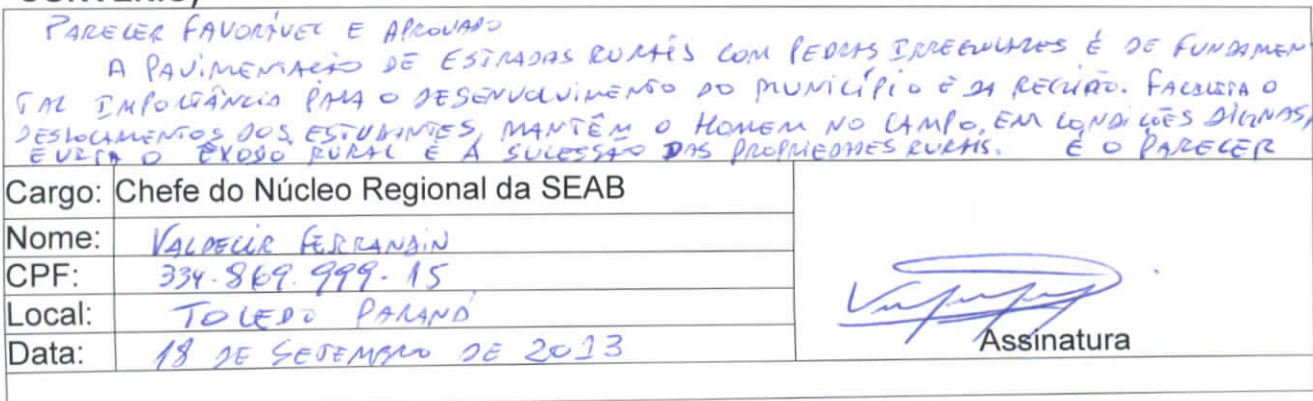 PARECER FAVORÁVEL E APROVADO
A PAVIMENTAÇÃO DE ESTRADAS RURAIS COM PEDRAS IRREGULARES É DE FUNDAMEN
TAL IMPORTÂNCIA PARA O DESENVOLVIMENTO DO MUNICÍPIO E DA REGIÃO. FACILITA O
DESLOCAMENTOS DOS ESTUDANTES, MANTÊM O HOMEM NO CAMPO, EM CONDIÇÕES DIGNAS,
EVITA O ÊXODO RURAL E A SUCESSÃO DAS PROPRIEDADES RURAIS. É O PARECER
Cargo: Chefe do Núcleo Regional da SEAB
Nome: VALDECIR FERRANDIN
CPF: 334.869.999-15
Local: TOLEDO PARANÁ
Data: 18 DE SETEMBRO DE 2013
Assinatura